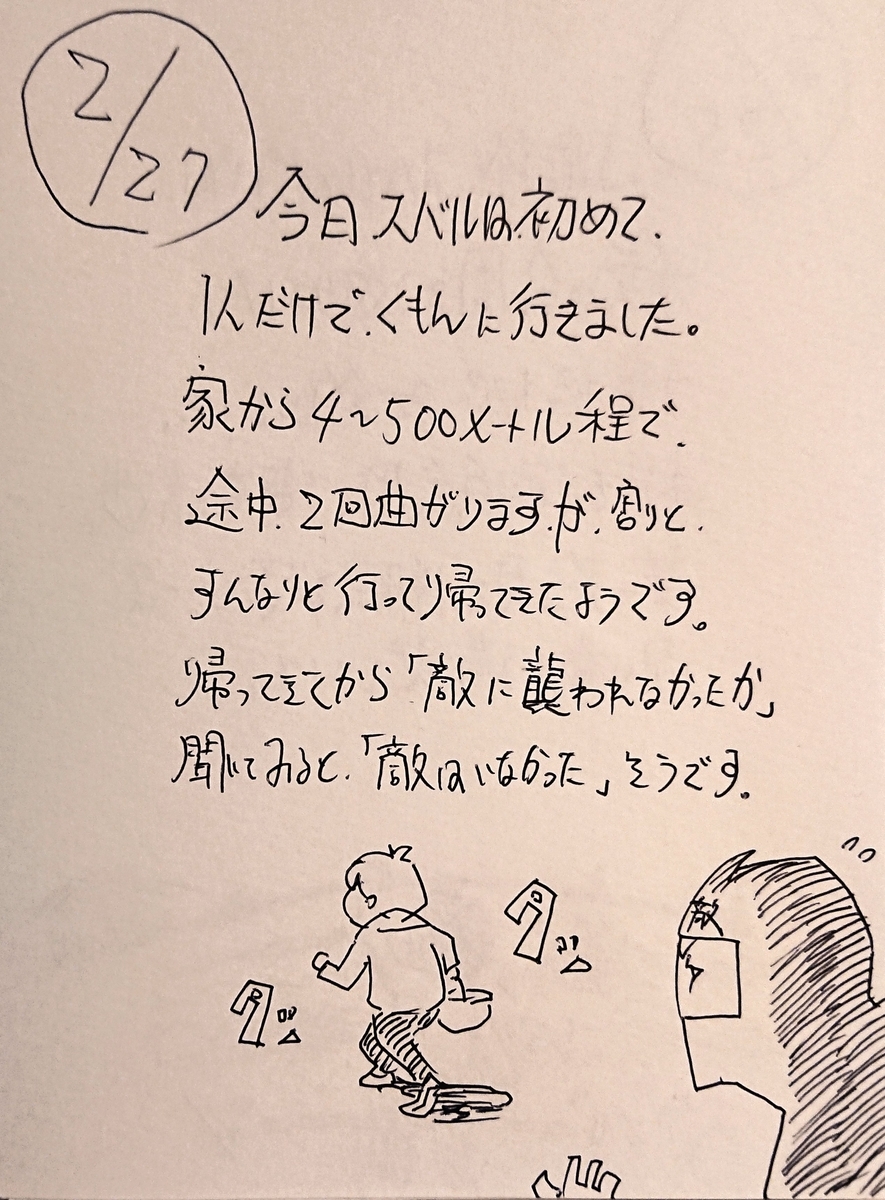 2/27
今日スバルは初めて、
1人だけで、くもんに行きました。
家から4~500メートル程で、
途中、2回曲がりますが、割と、
すんなりと行って帰ってきたようです。
帰ってきてから「敵に襲われなかったか」
聞いてみると、「敵はいなかった」そうです。
敵